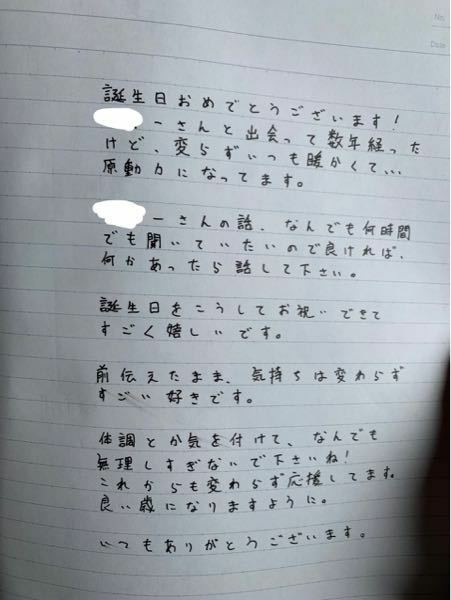 No.
Date
誕生日おめでとうございます!
ーさんと出会って数年経った
けど、変らずいつも暖かくて...
原動力になってます。
ーさんの話、なんでも何時間
でも聞いていたいので良ければ、
何かあったら話して下さい。
誕生日をこうしてお祝いできて
すごく嬉しいです。
前伝えたまま、気持ちは変わらず
すごい好きです。
体調とか気を付けて、なんでも
無理しすぎないで下さいね!
これからも変わらず応援してます。
良い歳になりますように。
いつもありがとうございます。